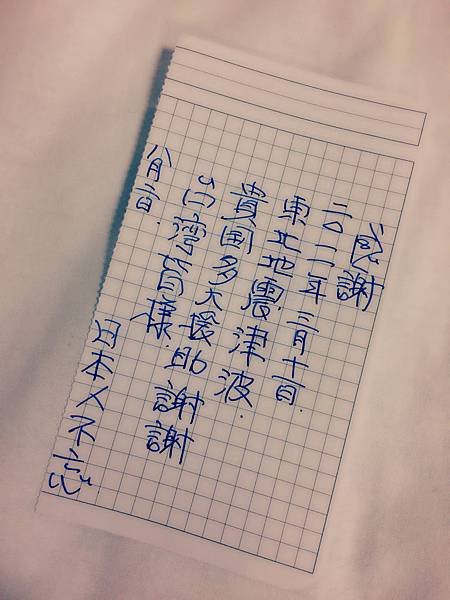 感謝
二〇一一年 三月十一日.
東北地震津波.
貴国多大援助 謝謝
台湾皆様.
日本人不忘